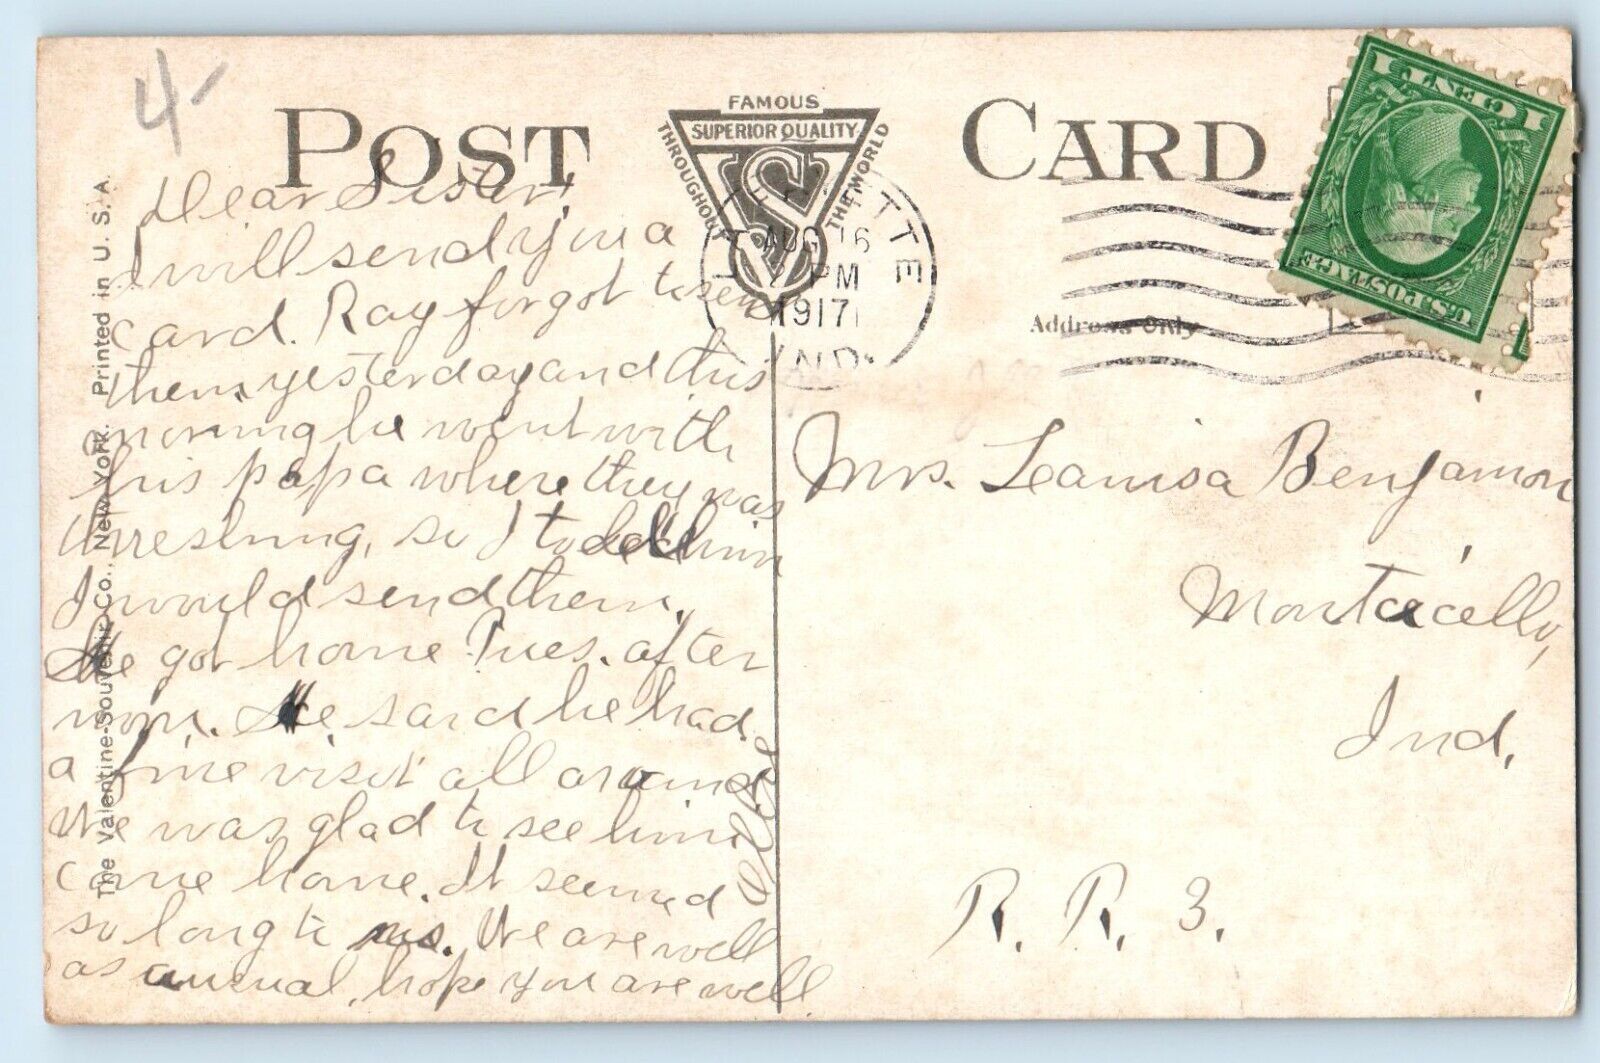 4-
POST CARD
FAMOUS
SUPERIOR QUALITY
THROUGHOUT
THE WORLD
VS
The Valentine-Souvenir Co., New York. Printed in U. S. A.
Address Only
AUG 16
PM
1917
IND.
1 CENT 1
U.S. POSTAGE
Dear Sister,
I will send you a
card. Ray forgot to send
them yesterday and this
morning he went with
his papa where they was
threshing, so I told him
I would send them.
He got home Tues. after
noon. He said he had
a fine visit all around
We was glad to see him
come home. It seemed
so long to us. We are well
as usual, hope you are well
Mrs. Louisa Benjamon
Montecello,
Ind,
R. R. 3.